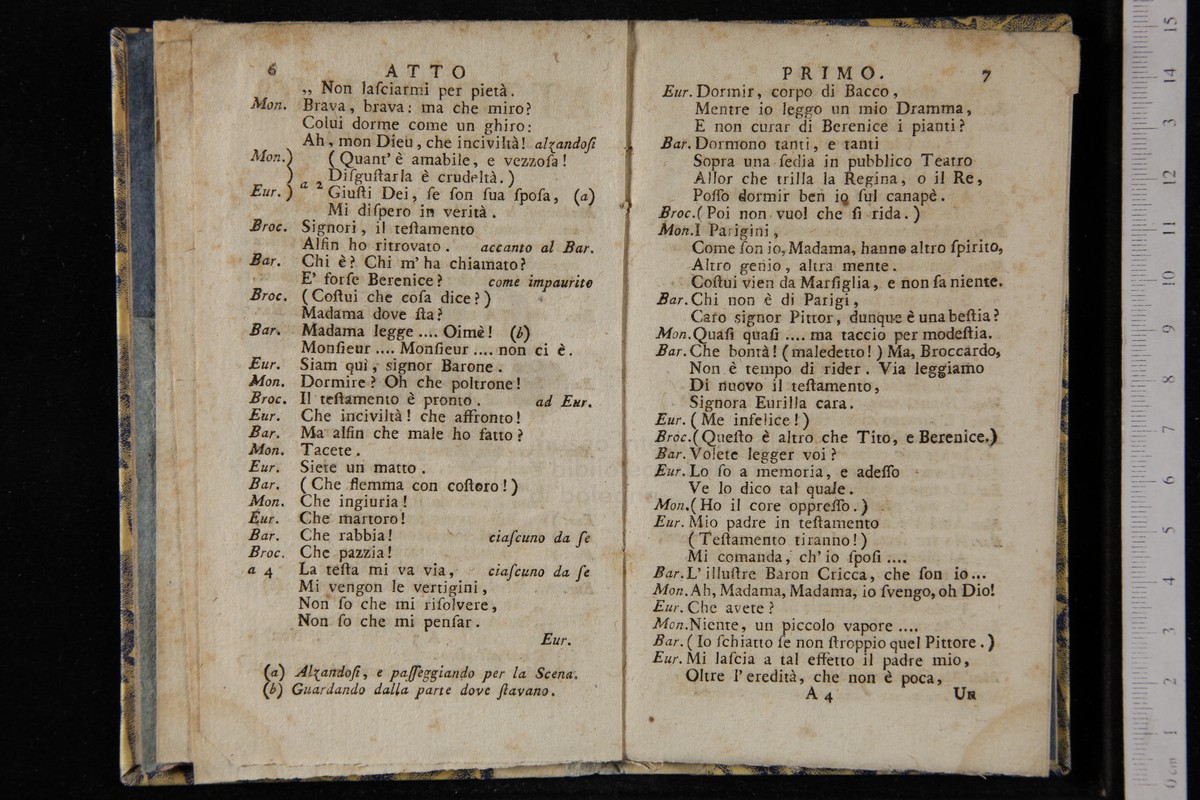 6 ATTO
„ Non laſciarmi per pietà.
Mon. Brava, brava: ma che miro?
Colui dorme come un ghiro:
Ah, mon Dieu, che inciviltà! alzandoſi
Mon.) (Quant' è amabile, e vezzoſa!
) a 2 Diſguſtarla è crudeltà.)
Eur.) Giuſti Dei, ſe ſon ſua ſpoſa, (a)
Mi diſpero in verità.
Broc. Signori, il teſtamento
Alfin ho ritrovato. accanto al Bar.
Bar. Chi è? Chi m' ha chiamato?
E' forſe Berenice? come impaurito
Broc. (Coſtui che coſa dice?)
Madama dove ſta?
Bar. Madama legge .... Oimè! (b)
Monſieur .... Monſieur .... non ci è.
Eur. Siam qui, signor Barone.
Mon. Dormire? Oh che poltrone!
Broc. Il teſtamento è pronto. ad Eur.
Eur. Che inciviltà! che affronto!
Bar. Ma alfin che male ho fatto?
Mon. Tacete.
Eur. Siete un matto.
Bar. (Che flemma con coſtoro!)
Mon. Che ingiuria!
Eur. Che martoro!
Bar. Che rabbia! ciaſcuno da ſe
Broc. Che pazzia!
a 4 La teſta mi va via, ciaſcuno da ſe
Mi vengon le vertigini,
Non ſo che mi riſolvere,
Non ſo che mi penſar.
Eur.
(a) Alzandoſi, e paſſeggiando per la Scena.
(b) Guardando dalla parte dove ſtavano.
PRIMO. 7
Eur. Dormir, corpo di Bacco,
Mentre io leggo un mio Dramma,
E non curar di Berenice i pianti?
Bar. Dormono tanti, e tanti
Sopra una ſedia in pubblico Teatro
Allor che trilla la Regina, o il Re,
Poſſo dormir ben io ſul canapè.
Broc. (Poi non vuol che ſi rida.)
Mon. I Parigini,
Come ſon io, Madama, hanno altro ſpirito,
Altro genio, altra mente.
Coſtui vien da Marſiglia, e non fa niente.
Bar. Chi non è di Parigi,
Caro signor Pittor, dunque è una beſtia?
Mon. Quaſi quaſi .... ma taccio per modeſtia.
Bar. Che bontà! (maledetto!) Ma, Broccardo,
Non è tempo di rider. Via leggiamo
Di nuovo il teſtamento,
Signora Eurilla cara.
Eur. (Me infelice!)
Broc. (Queſto è altro che Tito, e Berenice.)
Bar. Volete legger voi?
Eur. Lo ſo a memoria, e adeſſo
Ve lo dico tal quale.
Mon. (Ho il core oppreſſo.)
Eur. Mio padre in teſtamento
(Teſtamento tiranno!)
Mi comanda, ch' io ſpoſi ....
Bar. L' illuſtre Baron Cricca, che ſon io...
Mon. Ah, Madama, Madama, io ſvengo, oh Dio!
Eur. Che avete?
Mon. Niente, un piccolo vapore ....
Bar. (Io ſchiatto ſe non ſtroppio quel Pittore.)
Eur. Mi laſcia a tal effetto il padre mio,
Oltre l' eredità, che non è poca,
A 4 Un
0 cm 1 2 3 4 5 6 7 8 9 10 11 12 3 14 15